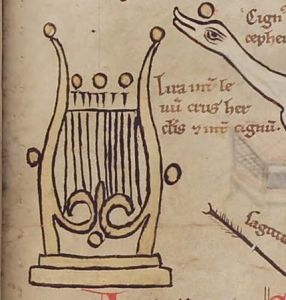 Cign
cephe
Lira int̄ le
uū crus her
clis ⁊ int̄ cignū.
Sagitta